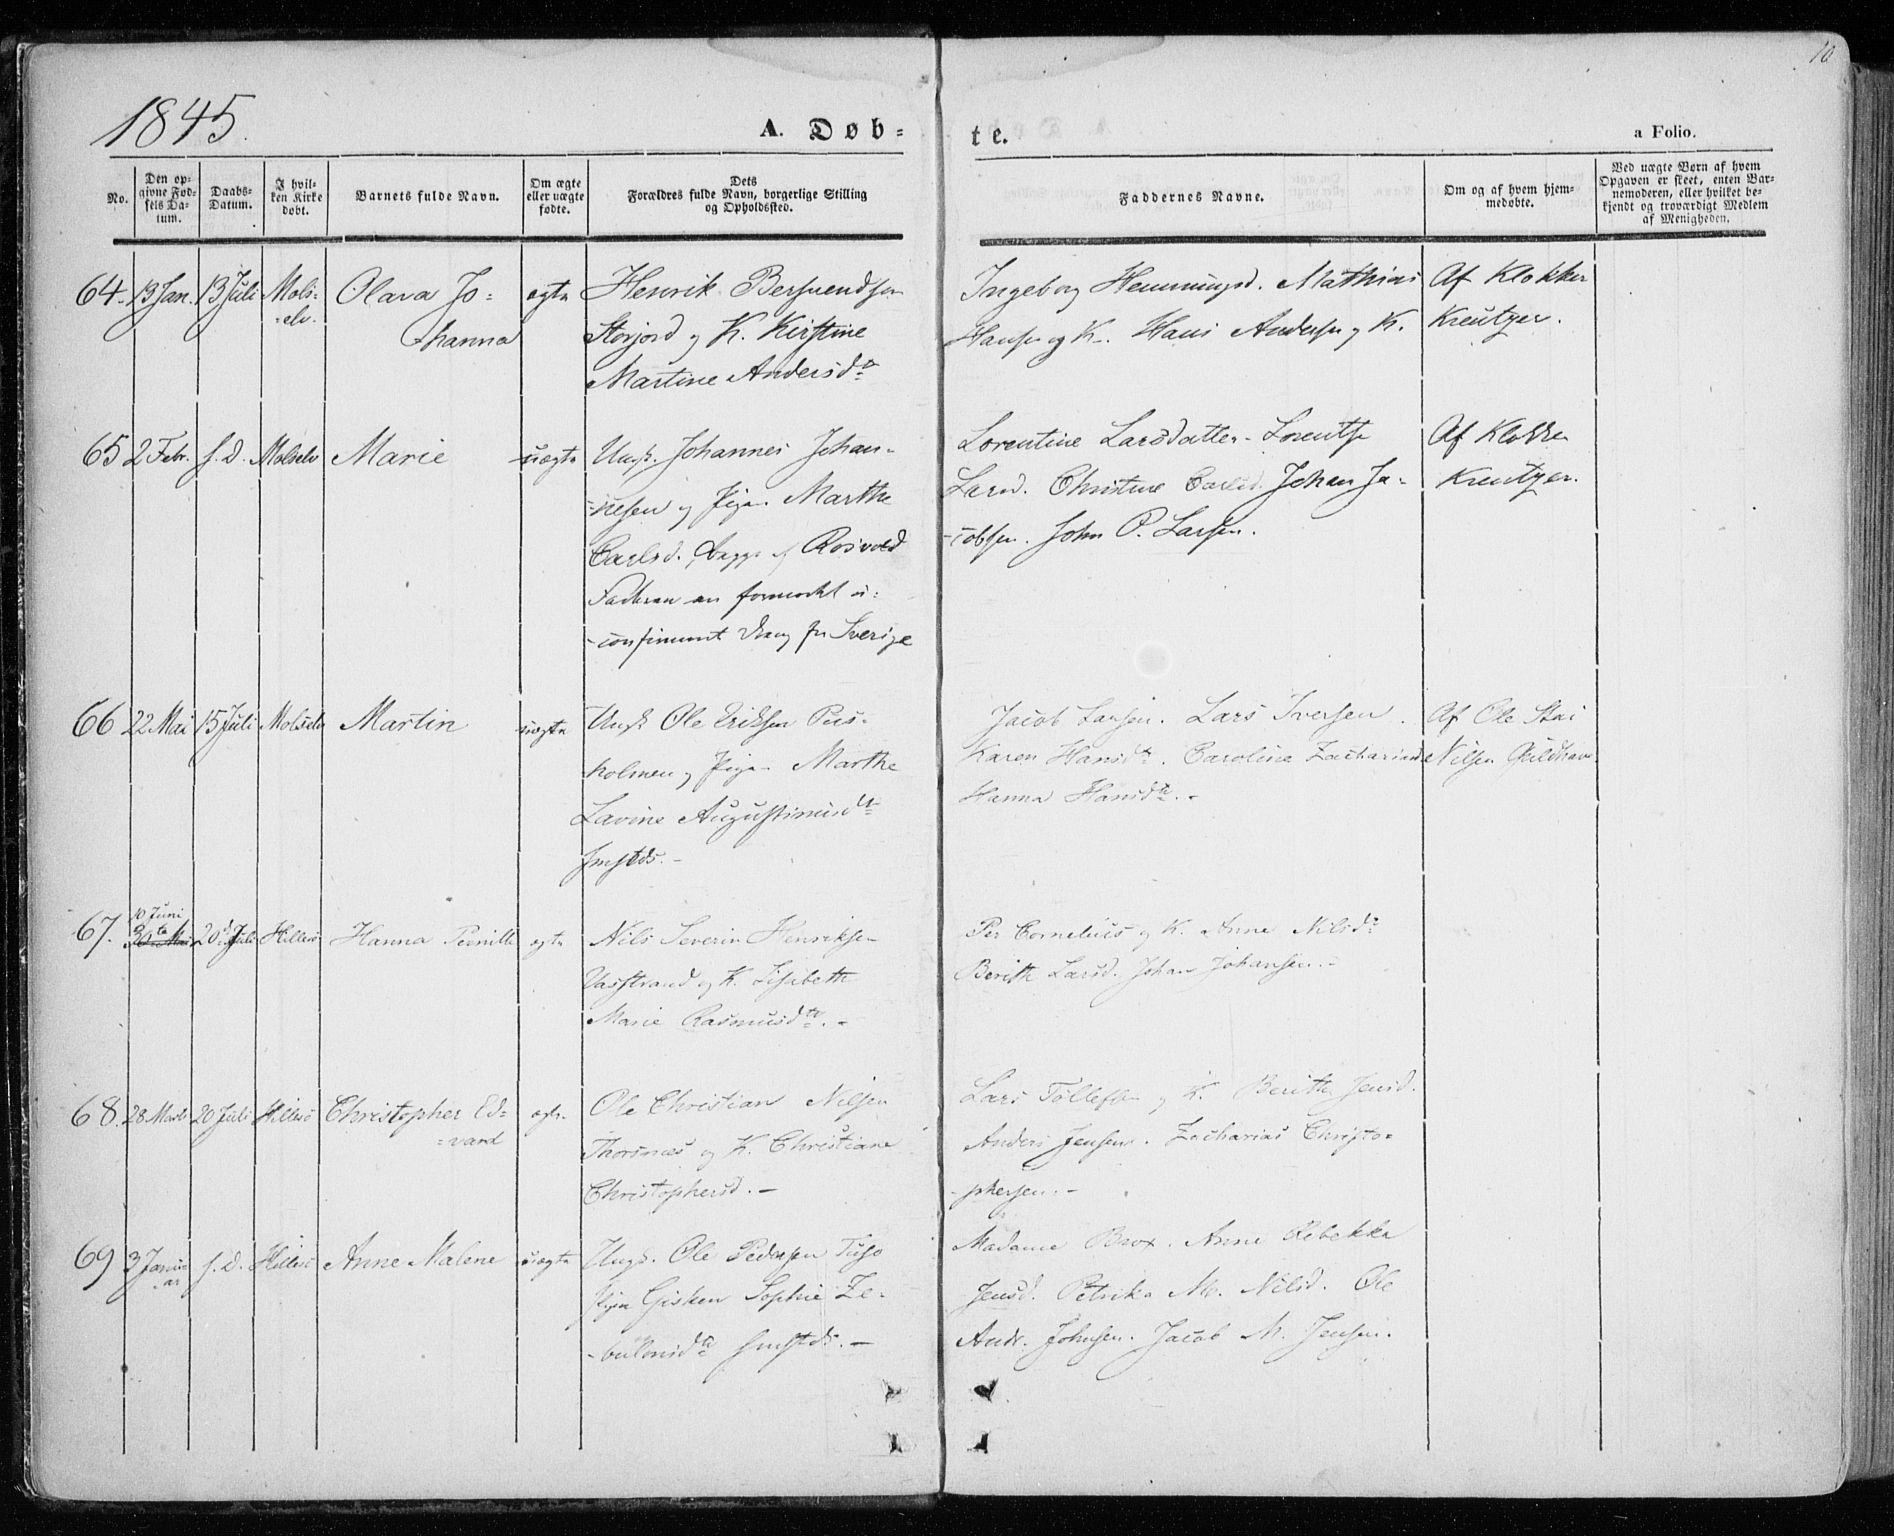 10
1845.
A. Døb-
te.
a Folio.
No.
Den op-
givne Fød-
sels Da-
tum.
Daabs-
Datum.
I hvil-
ken Kirke
døbt.
Barnets fulde Navn.
Om ægte
eller uægte
fødte.
Dets
Forældres fulde Navn, borgerlige Stilling
og Opholdssted.
Faddernes Navne.
Om og af hvem hjem-
medøbte.
Ved uægte Børn af hvem
Opgaven er skeet, enten Bar-
nemoderen, eller hvilket be-
kjendt og troværdigt Medlem
af Menigheden.
64. 13 Jan. 13 Juli Mols-
=elv.
Olava Jo=
hanna
ægte
Henrik Bersvendsen
Storjord og K. Kirstine
Martine Andersd.
Ingeborg Hemmingsd. Mathias
Hansen og K. Hans Andersen og K.
Af Klokker
Kreutzer.
65 2 Febr. s. d. Molselv Marie uægte
Ungk. Johannes Johan-
-nesen og Pige Marthe
Carlsd. begge af Rosvold
Faderen en
-confirmeret fra Sverige
Lorentine Larsdatter. Lorentse
Larsd. Christine Carlsd. Johan Ja-
-cobsen. John P. Larsen.
Af Klokker
Kreutzer.
66 22 Mai 15 Juli Molselv Martin uægte
Ungk. Ole Eriksen
holmen og Pige Marthe
Lavine Augustinusd.
Jacob Larsen. Lars Iversen.
Karen Hansd. Caroline Zachariasd.
Hanna Hansd.
Af Ole
Nilsen Guldhav
67. 10 Juni
20 Juli Hillesö Hanna Pernille ægte
Nils Severin Henriksen
Vasstrand og K. Lisabeth
Marie Rasmusd.
Per Cornelius og K. Anne Nilsd.
Berith Larsd. Johan Johansen.
68. 28 Marts 20 Juli Hillesö Christopher Ed=
=vard
ægte
Ole Christian Nilsen
Thorsnæs og K. Christiane
Christophersd.
Lars Tollefsen og K. Berithe Jensd.
Anders Jensen. Zacharias Christo=
-phersen.
69 3 Janu=
ar
s. d. Hillesö Anne Malene uægte
Ungk. Ole Pedersen
Pige Gisken Sophie Ze-
-bulonsd.
Madame Brox. Anne Rebekka
Jensd. Petrika M. Nilsd. Ole
Andr. Johnsen. Jacob M. Jensen.